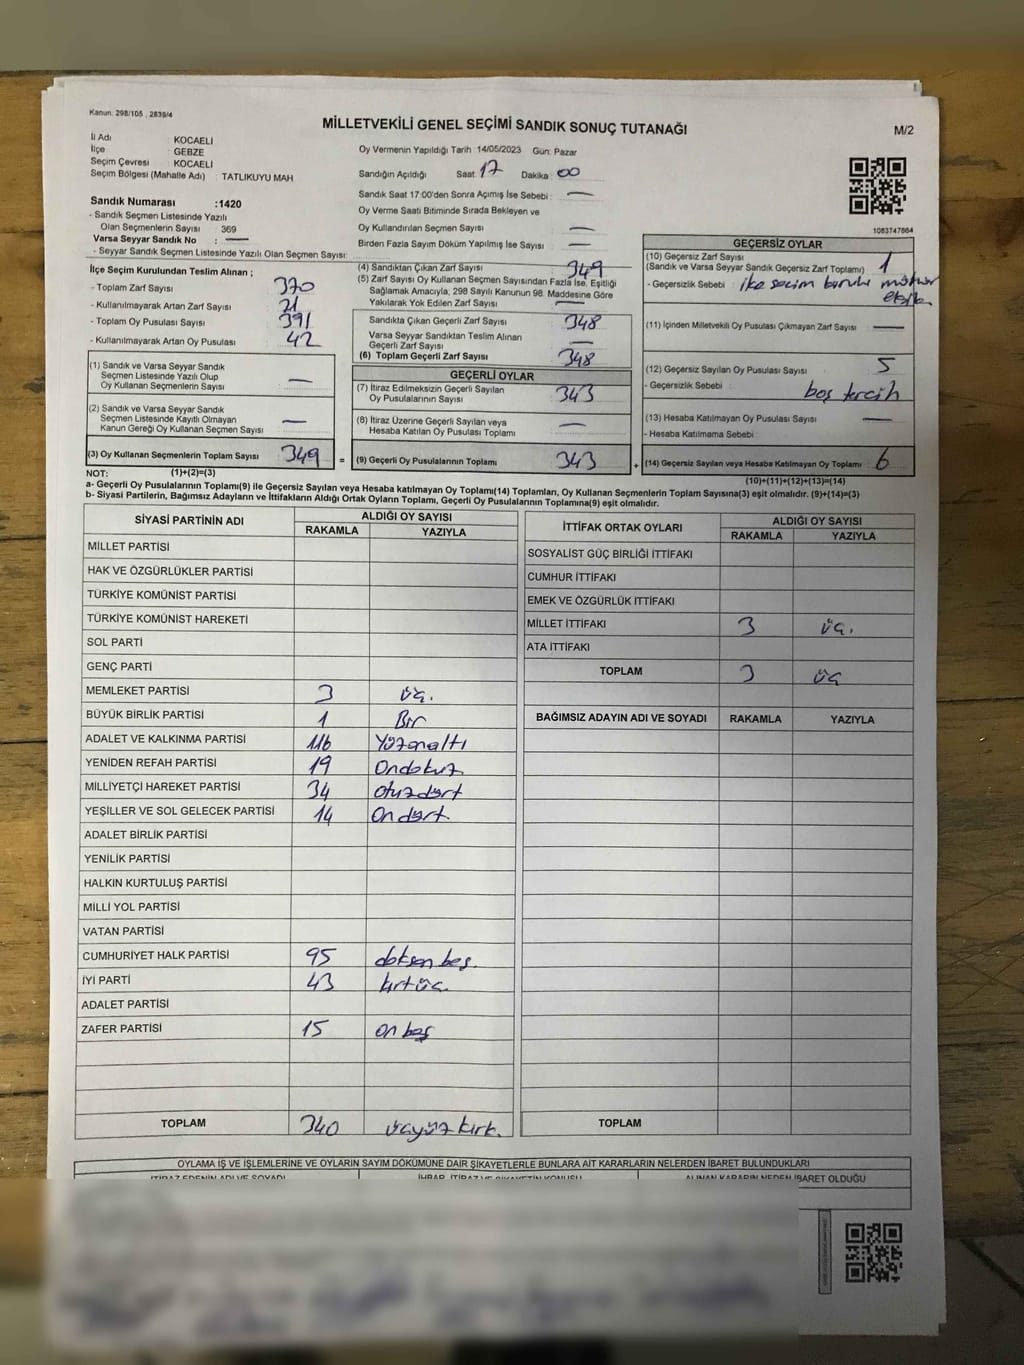 Kanun: 298/105 , 2839/4
MİLLETVEKİLİ GENEL SEÇİMİ SANDIK SONUÇ TUTANAĞI
M/2
İl Adı : KOCAELİ
İlçe : GEBZE
Seçim Çevresi : KOCAELİ
Seçim Bölgesi (Mahalle Adı) : TATLIKUYU MAH
Sandık Numarası :1420
- Sandık Seçmen Listesinde Yazılı
Olan Seçmenlerin Sayısı : 369
Varsa Seyyar Sandık No : —
- Seyyar Sandık Seçmen Listesinde Yazılı Olan Seçmen Sayısı:
Oy Vermenin Yapıldığı Tarih :14/05/2023 Gün: Pazar
Sandığın Açıldığı Saat: 17 Dakika: 00
Sandık Saat 17:00'den Sonra Açılmış İse Sebebi : —
Oy Verme Saati Bitiminde Sırada Bekleyen ve
Oy Kullandırılan Seçmen Sayısı : —
Birden Fazla Sayım Döküm Yapılmış İse Sayısı : —
1083747864
İlçe Seçim Kurulundan Teslim Alınan ;
- Toplam Zarf Sayısı : 370
- Kullanılmayarak Artan Zarf Sayısı : 21
- Toplam Oy Pusulası Sayısı : 391
- Kullanılmayarak Artan Oy Pusulası : 42
(1) Sandık ve Varsa Seyyar Sandık
Seçmen Listesinde Yazılı Olup
Oy Kullanan Seçmenlerin Sayısı : —
(2) Sandık ve Varsa Seyyar Sandık
Seçmen Listesinde Kayıtlı Olmayan
Kanun Gereği Oy Kullanan Seçmen Sayısı : —
(3) Oy Kullanan Seçmenlerin Toplam Sayısı : 349
(4) Sandıktan Çıkan Zarf Sayısı : 349
(5) Zarf Sayısı Oy Kullanan Seçmen Sayısından Fazla İse, Eşitliği
Sağlamak Amacıyla, 298 Sayılı Kanunun 98. Maddesine Göre
Yakılarak Yok Edilen Zarf Sayısı : —
Sandıkta Çıkan Geçerli Zarf Sayısı : 348
Varsa Seyyar Sandıktan Teslim Alınan
Geçerli Zarf Sayısı : —
(6) Toplam Geçerli Zarf Sayısı : 348
GEÇERLİ OYLAR
(7) İtiraz Edilmeksizin Geçerli Sayılan
Oy Pusulalarının Sayısı : 343
(8) İtiraz Üzerine Geçerli Sayılan veya
Hesaba Katılan Oy Pusulası Toplamı : —
= (9) Geçerli Oy Pusulalarının Toplamı : 343
GEÇERSİZ OYLAR
(10) Geçersiz Zarf Sayısı
(Sandık ve Varsa Seyyar Sandık Geçersiz Zarf Toplamı) : 1
- Geçersizlik Sebebi : ilçe seçim kurulu mühür
eksik
(11) İçinden Milletvekili Oy Pusulası Çıkmayan Zarf Sayısı : —
(12) Geçersiz Sayılan Oy Pusulası Sayısı : 5
- Geçersizlik Sebebi : boş tercih
(13) Hesaba Katılmayan Oy Pusulası Sayısı : —
- Hesaba Katılmama Sebebi :
+ (14) Geçersiz Sayılan veya Hesaba Katılmayan Oy Toplamı : 6
NOT: (1)+(2)=(3)
(10)+(11)+(12)+(13)=(14)
a- Geçerli Oy Pusulalarının Toplamı(9) ile Geçersiz Sayılan veya Hesaba katılmayan Oy Toplamı(14) Toplamları, Oy Kullanan Seçmenlerin Toplam Sayısına(3) eşit olmalıdır. (9)+(14)=(3)
b- Siyasi Partilerin, Bağımsız Adayların ve İttifakların Aldığı Ortak Oyların Toplamı, Geçerli Oy Pusulalarının Toplamına(9) eşit olmalıdır.
SİYASİ PARTİNİN ADI ALDIĞI OY SAYISI
RAKAMLA YAZIYLA
MİLLET PARTİSİ
HAK VE ÖZGÜRLÜKLER PARTİSİ
TÜRKİYE KOMÜNİST PARTİSİ
TÜRKİYE KOMÜNİST HAREKETİ
SOL PARTİ
GENÇ PARTİ
MEMLEKET PARTİSİ 3 üç.
BÜYÜK BİRLİK PARTİSİ 1 Bir
ADALET VE KALKINMA PARTİSİ 116 Yüzonaltı
YENİDEN REFAH PARTİSİ 19 Ondokuz
MİLLİYETÇİ HAREKET PARTİSİ 34 otuzdört
YEŞİLLER VE SOL GELECEK PARTİSİ 14 Ondört
ADALET BİRLİK PARTİSİ
YENİLİK PARTİSİ
HALKIN KURTULUŞ PARTİSİ
MİLLİ YOL PARTİSİ
VATAN PARTİSİ
CUMHURİYET HALK PARTİSİ 95 doksan beş.
İYİ PARTİ 43 kırküç.
ADALET PARTİSİ
ZAFER PARTİSİ 15 on beş
TOPLAM 340 üçyüz kırk.
İTTİFAK ORTAK OYLARI ALDIĞI OY SAYISI
RAKAMLA YAZIYLA
SOSYALİST GÜÇ BİRLİĞİ İTTİFAKI
CUMHUR İTTİFAKI
EMEK VE ÖZGÜRLÜK İTTİFAKI
MİLLET İTTİFAKI 3 üç.
ATA İTTİFAKI
TOPLAM 3 üç
BAĞIMSIZ ADAYIN ADI VE SOYADI RAKAMLA YAZIYLA
TOPLAM
OYLAMA İŞ VE İŞLEMLERİNE VE OYLARIN SAYIM DÖKÜMÜNE DAİR ŞİKAYETLERLE BUNLARA AİT KARARLARIN NELERDEN İBARET BULUNDUKLARI
İTİRAZ EDENİN ADI VE SOYADI İHBAR, İTİRAZ VE ŞİKAYETİN KONUSU ALINAN KARARIN NEDEN İBARET OLDUĞU